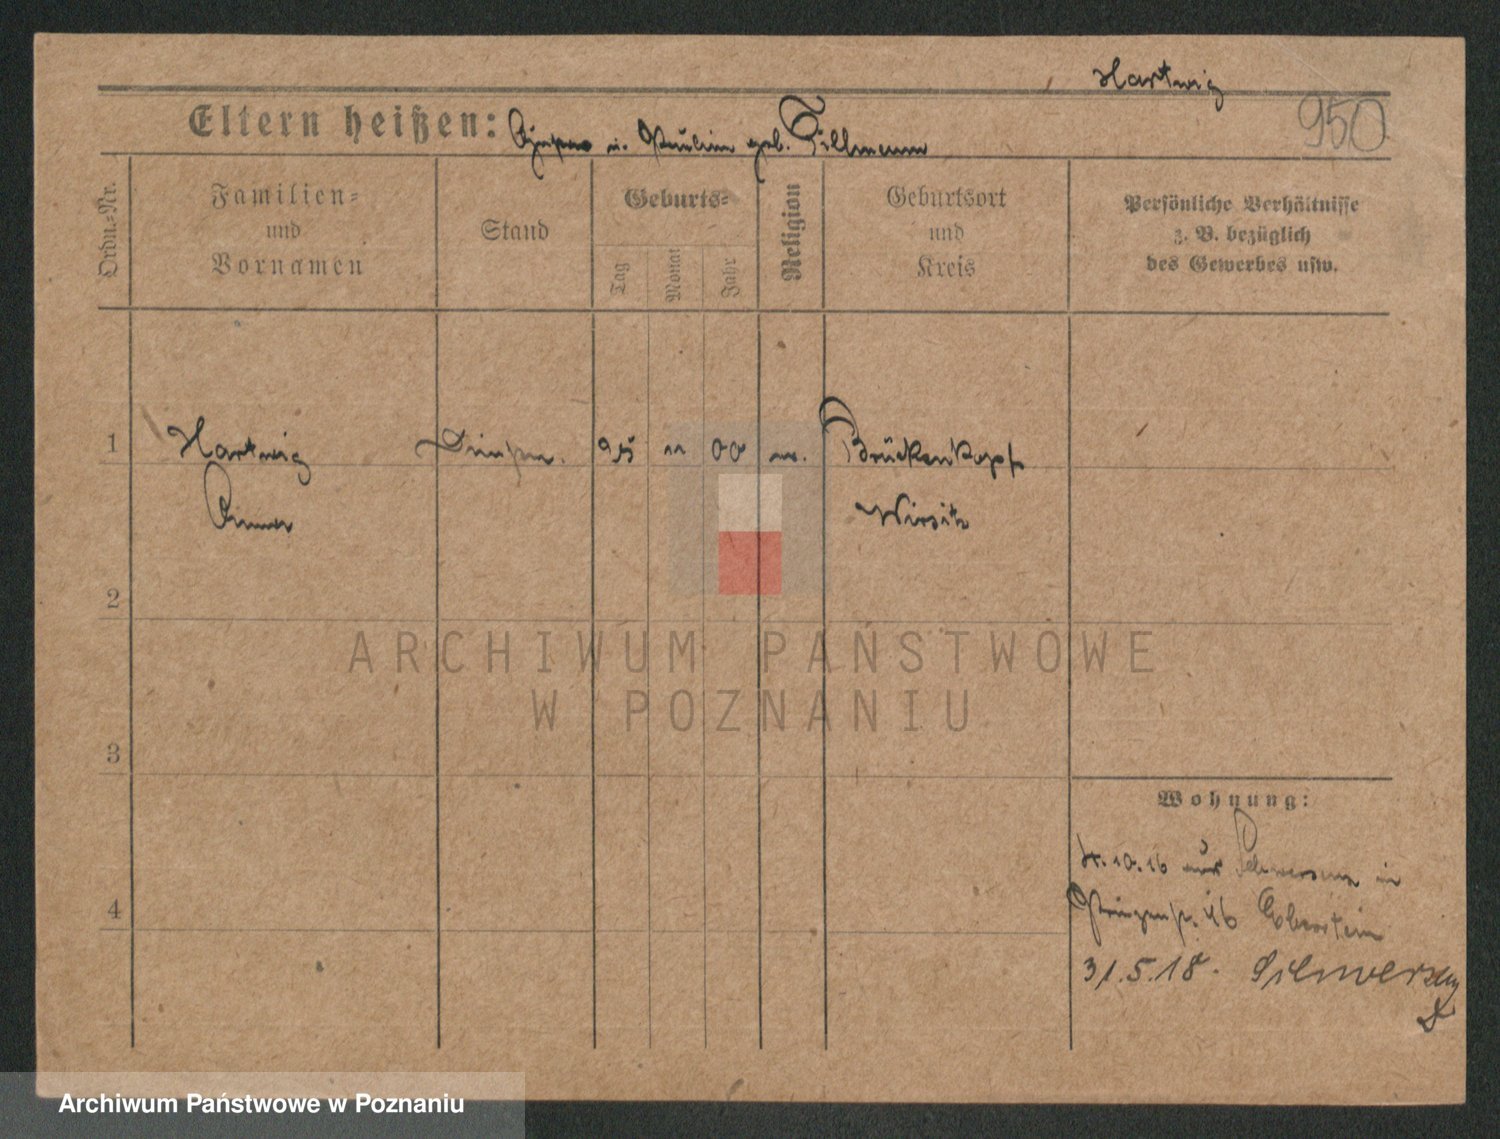 Hartwig
950
Eltern heißen: u. Pauline geb. Tillmann
Ordn.-Nr.
Familien-
und
Vornamen
Stand
Geburts-
Tag
Monat
Jahr
Religion
Geburtsort
und
Kreis
Persönliche Verhältnisse
z. B. bezüglich
des Gewerbes usw.
1 Hartwig 25 11 00 Brückenkopf
Anna Wirsitz
2
ARCHIWUM PAŃSTWOWE
W POZNANIU
3
Wohnung:
10.16 aus Schwersenz in
4
16 Eberstein
31.5.18. Schwersenz
Archiwum Państwowe w Poznaniu